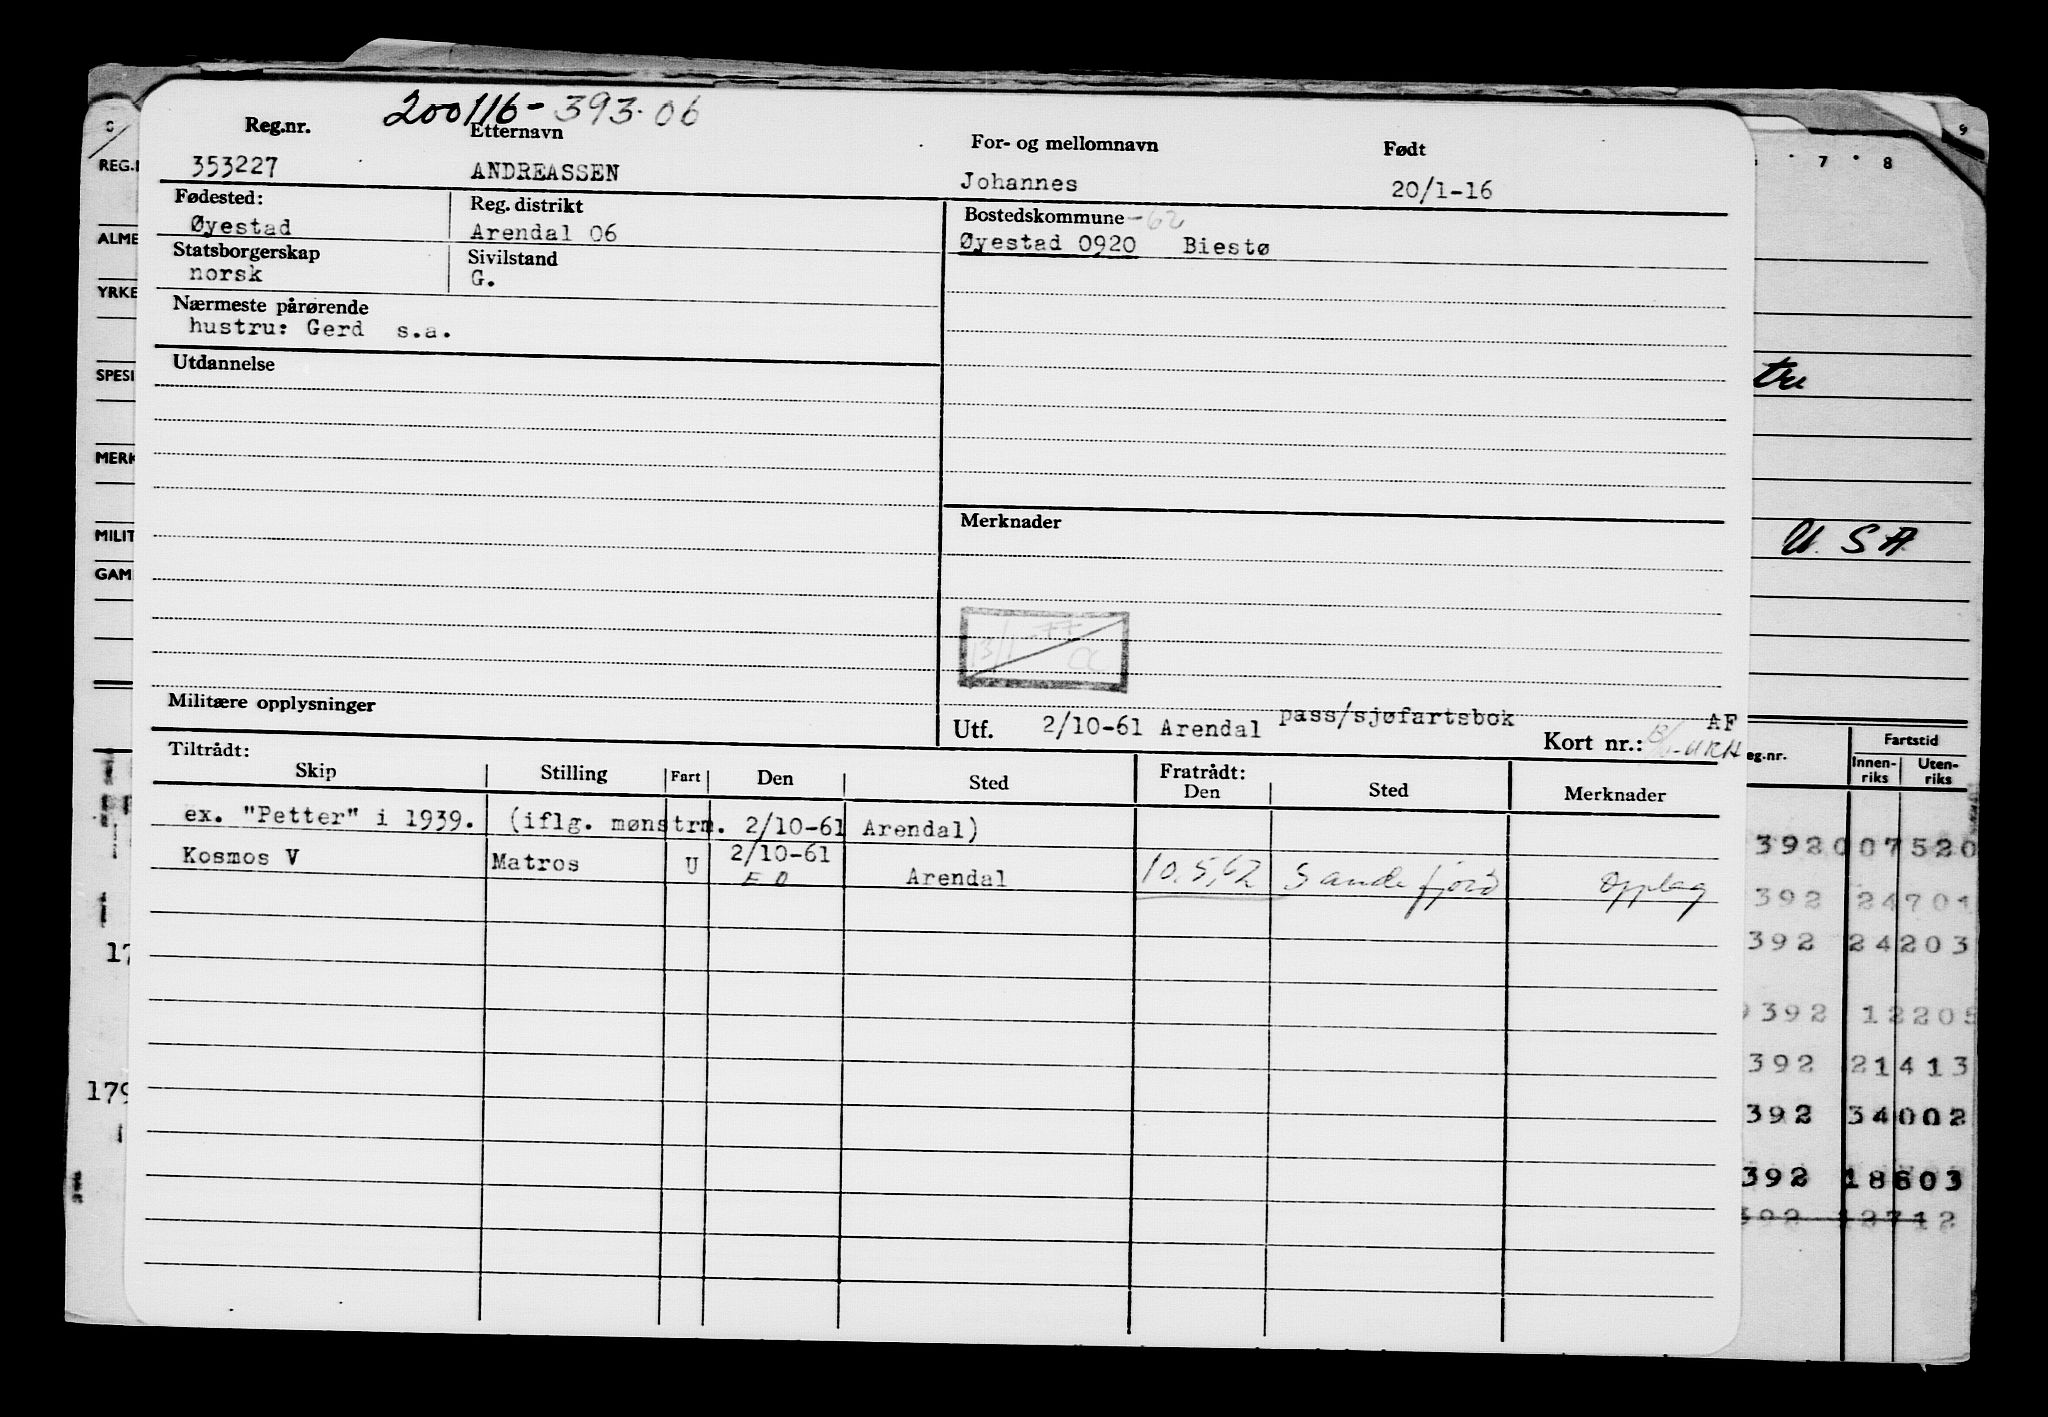 200116-393.06
Reg.nr. Etternavn For- og mellomnavn Født
353227 ANDREASSEN Johannes 20/1-16
Fødested: Reg. distrikt Bostedskommune -62
Øyestad Arendal 06 Øyestad 0920 Biestø
Statsborgerskap Sivilstand
norsk G.
Nærmeste pårørende
hustru: Gerd s.a.
Utdannelse
Merknader
13/1-77
CC
Militære opplysninger
Utf. 2/10-61 Arendal pass/sjøfartsbok AF
Kort nr.:
Tiltrådt: Fratrådt:
Skip Stilling Fart Den Sted Den Sted Merknader
ex. "Petter" i 1939. (iflg. mønstrm. 2/10-61 Arendal)
Kosmos V Matros U 2/10-61 Arendal 10.5.62 Sandefjord Opplag
REG.
ALME
YRKE
SPESI
MERK
MILIT
GAM
17
179
7 8
9
tru
U.S.A
eg.nr. Fartstid
Innen-riks Uten-riks
392007520
392 24701
392 24203
9392 12205
392 21413
392 34002
392 18603
392 12712